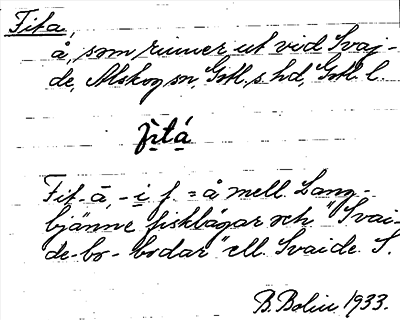 Fita,
å, som rinner ut vid Svaj-
de, Alskog sn, Gotl. s. hd, Gotl. l.
fità
Fit-ā, -i f. = å mell. Lang-
bjänne fisklägar och "Svai-
de-bo-bodar" ell. Svaide S.
B. Bolin 1933.